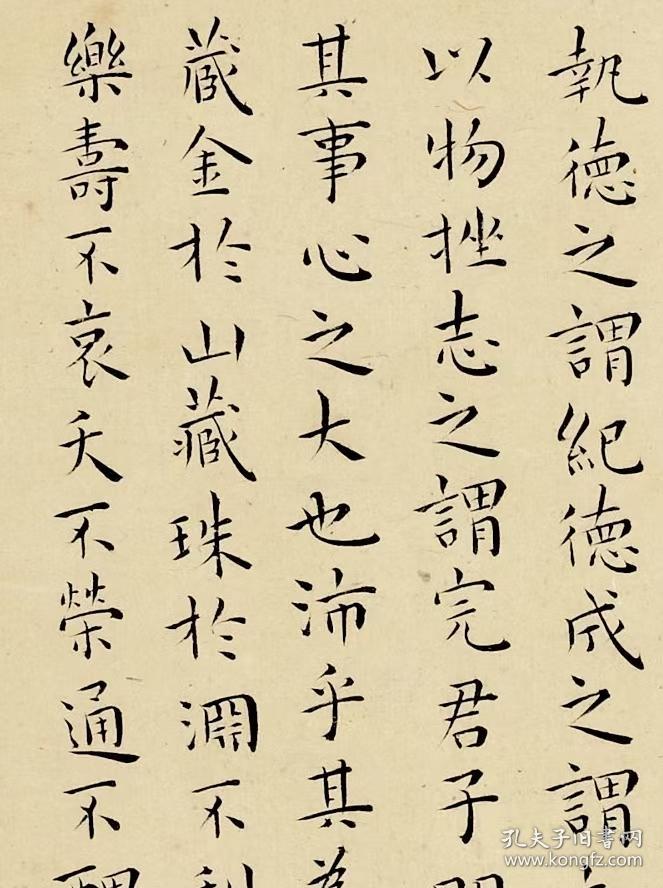 執德之謂紀德成之謂
以物挫志之謂完君子
其事心之大也沛乎其為
藏金於山藏珠於淵不利
樂壽不哀夭不榮通不醜
孔夫子旧書网
www.kongfz.com